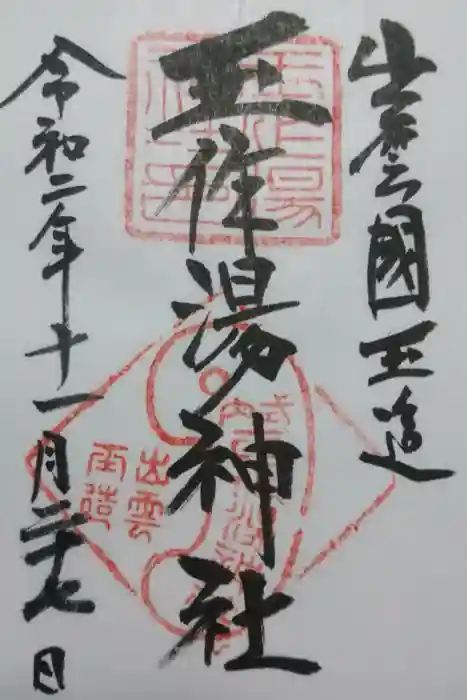 出雲國玉造
玉作湯神社
令和二年十一月二十七日
出雲
玉造